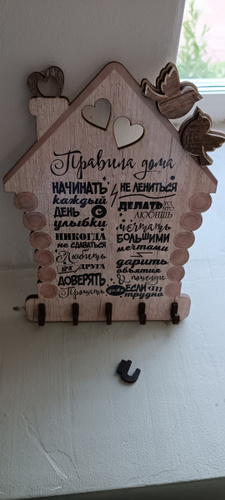 Правила дома
НАЧИНАТЬ
каждый
ДЕНЬ С
улыбки
НИКОГДА
не сдаваться
Любить
друга
ДОВЕРЯТЬ
Прощать
НЕ ЛЕНИТЬСЯ
ДЕЛАТЬ
ЛЮБИШЬ
мечтать
БОЛЬШИМИ
мечтами
дарить
объятия
и поцелуи
ЕСЛИ
трудно